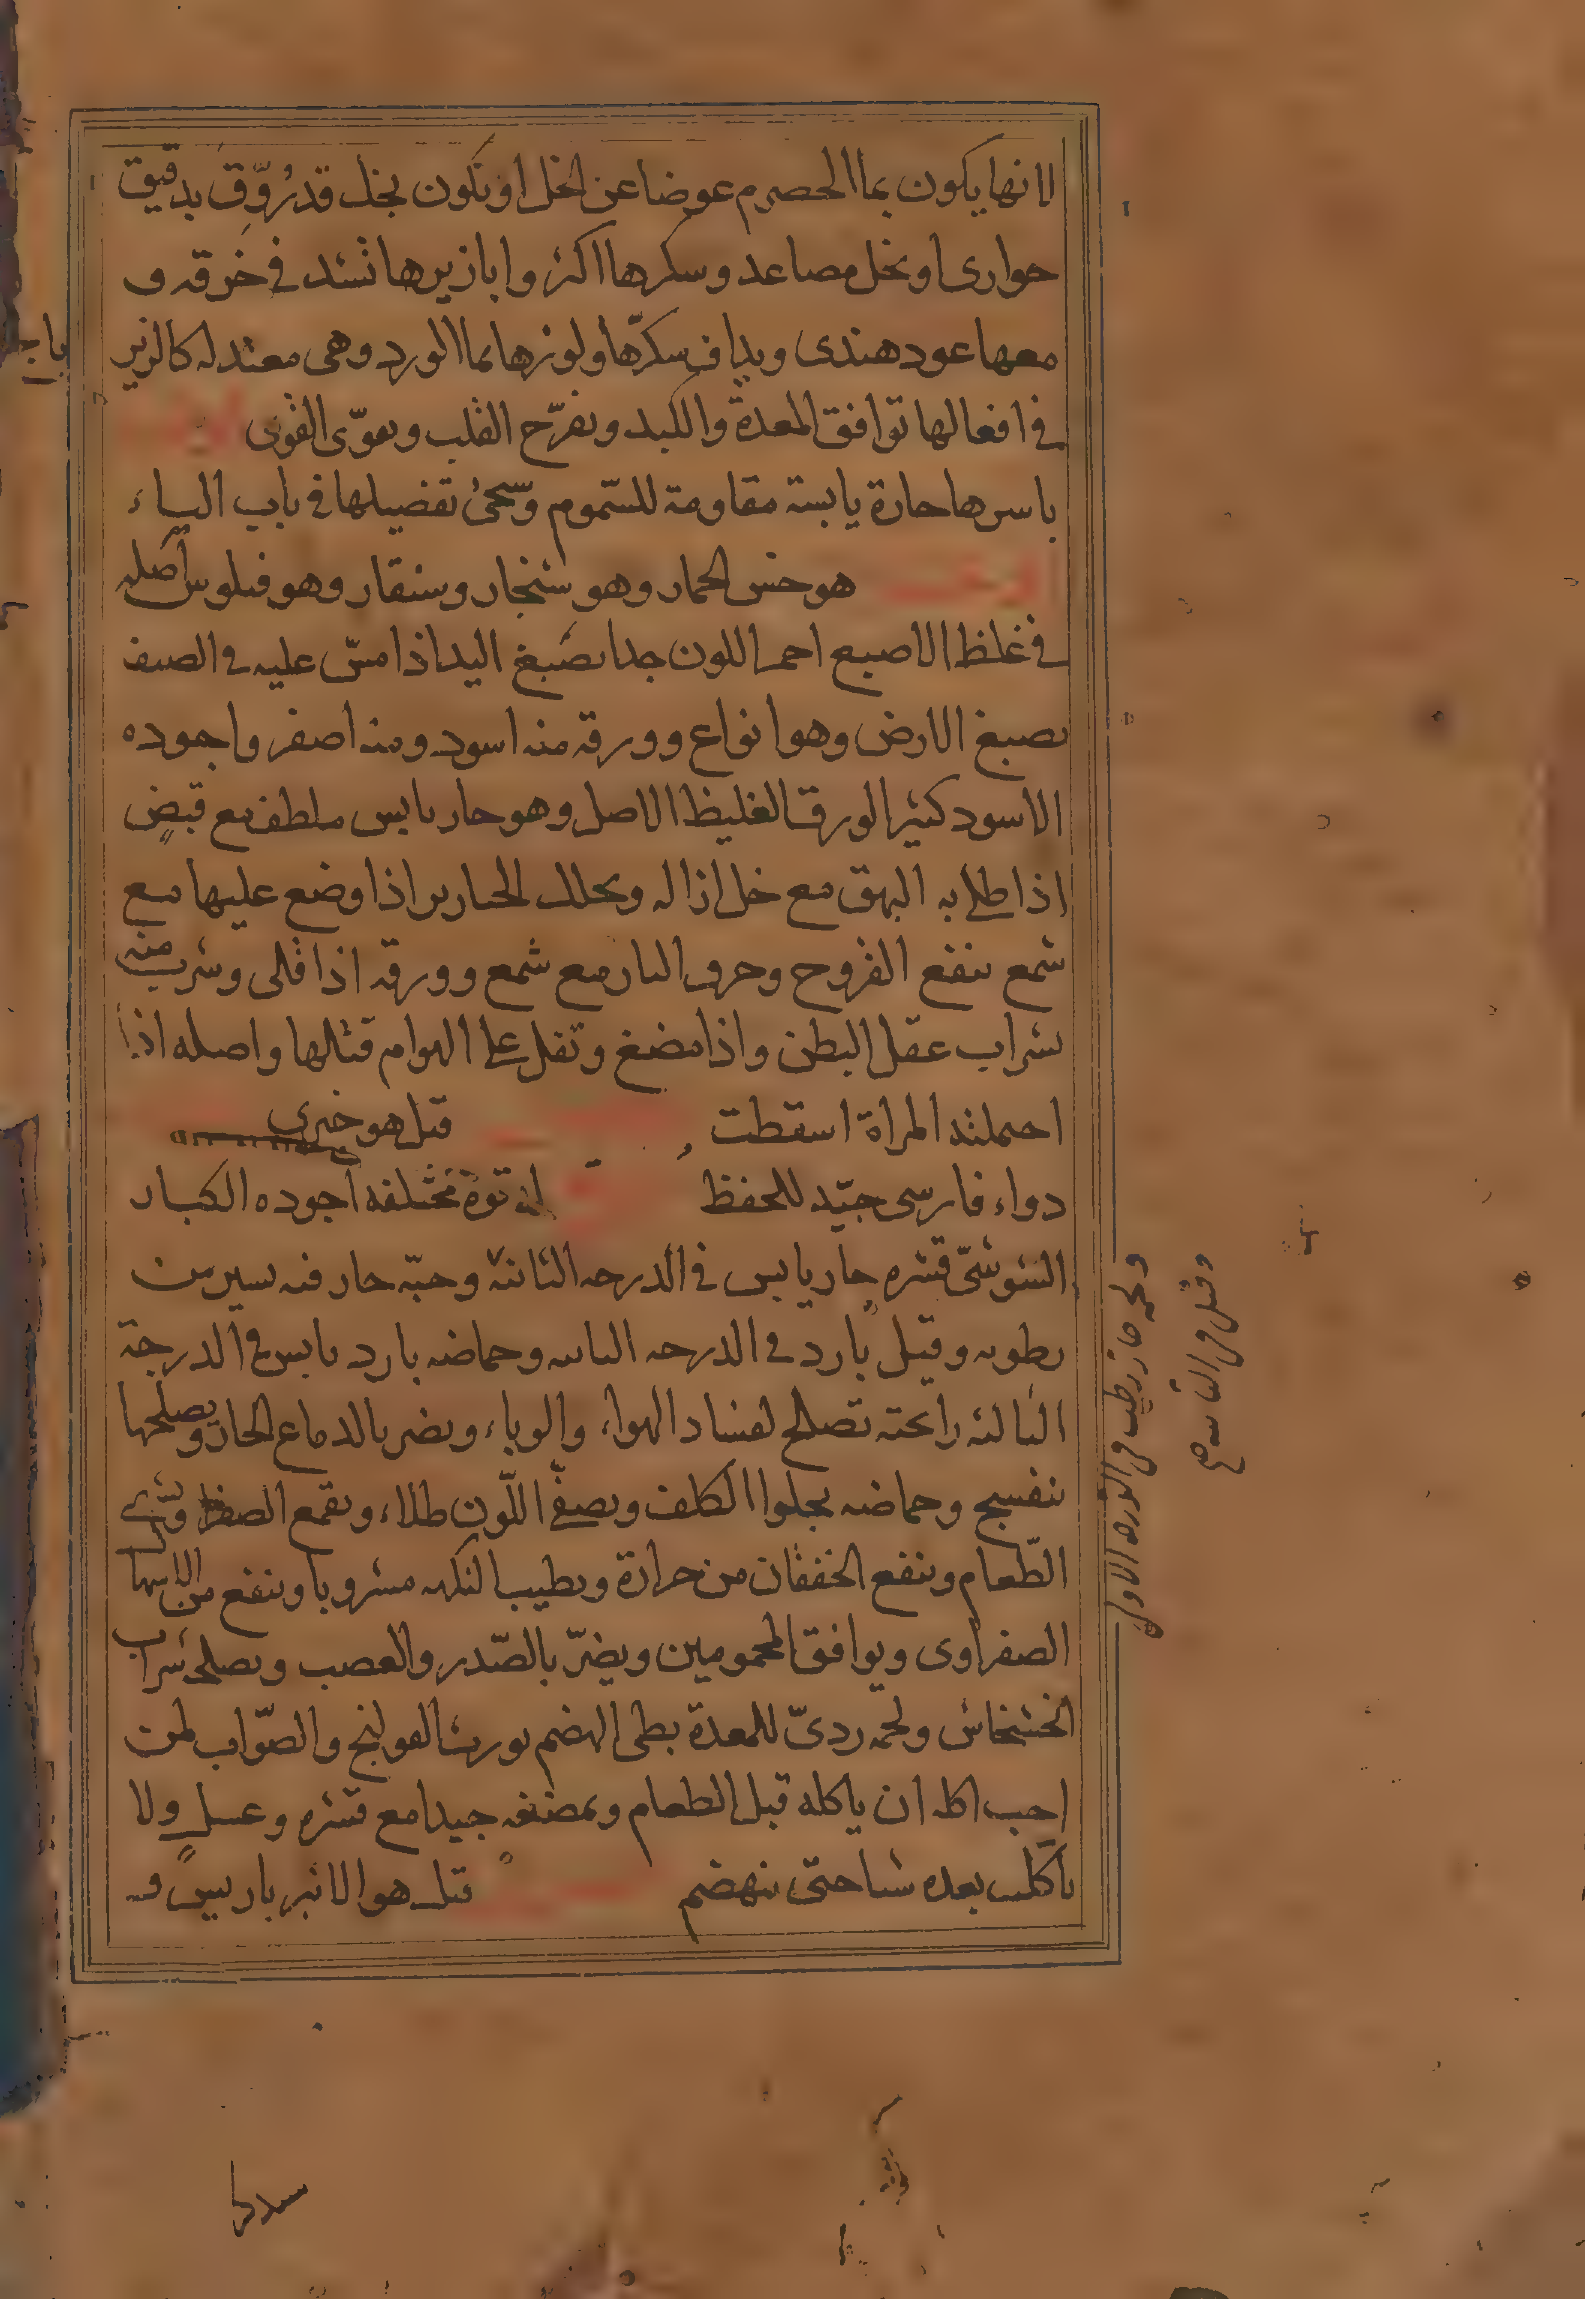 الا انها يكون بما الحصرم عوضا عن الخل او تكون بخل قد رُوّق بدقيق
حوارى او بخل مصاعد وسكرها اكثر وابازيرها تشد فى خرقه و
معها عود هندى ويداف سكرّها ولوزها بما الورد وهى معتدله كالزير
فى افعالها توافق المعدة والكبد وتفرّح القلب وتقوّى القوى
باسرها حارة يابسة مقاومة للسّموم وسيجئ تفضيلها فى باب الباء
هو خس الحمار وهو شنجار وسنقار وهو فيلوس اصله
فى غلظ الاصبع احمر اللون جدا يصبغ اليد اذا مسّ عليه فى الصيف
يصبغ الارض وهو انواع وورقه منه اسود ومنه اصفر واجوده
الاسود كثير الورق الغليظ الاصل وهو حار يابس ملطف مع قبض
اذا طلى به البهق مع خل ازاله ويحلل الخنازير اذا وضع عليها مع
شمع ينفع القروح وحرق النار مع شمع وورقه اذا قلى وشرب منه
بشراب عقل البطن واذا مضغ وتفل على الهوام قتلها واصله اذا
احتملته المراة اسقطت قيل هو خيرى
دواء فارسى جيّد للحفظ له قوة مختلفه اجوده الكبار
السّوسىّ قشره حار يابس فى الدرجه الثانية وحبّه حار فيه يسير من
رطوبه وقيل بارد فى الدرجه الثانيه وحماضه بارد يابس فى الدرجة
الثالثه رائحته تصلح لفساد الهواء والوباء ويضر بالدماغ الحار ويصلحها
بنفسج وحماضه يجلوا الكلف ويصفّى اللّون طلاء ويقمع الصفرا ويشهى
الطّعام وينفع الخفقان من حرارة ويطيب النكهه مشروبا وينفع من الاسهال
الصفراوى ويوافق المحمومين ويضرّ بالصّدر والعصب ويصلحه شراب
الخشخاش ولحمه ردىّ للمعدة بطى الهضم يورث القولنج والصّواب لمن
احب اكله ان ياكله قبل الطعام ويمضغه جيدا مع قشره وعسل ولا
ياكل بعده شيا حتى ينهضم قيل هو الانبرباريس و
ولحمه حار رطب فى الدرجه الاولى
وقيل فى الثانيه صح